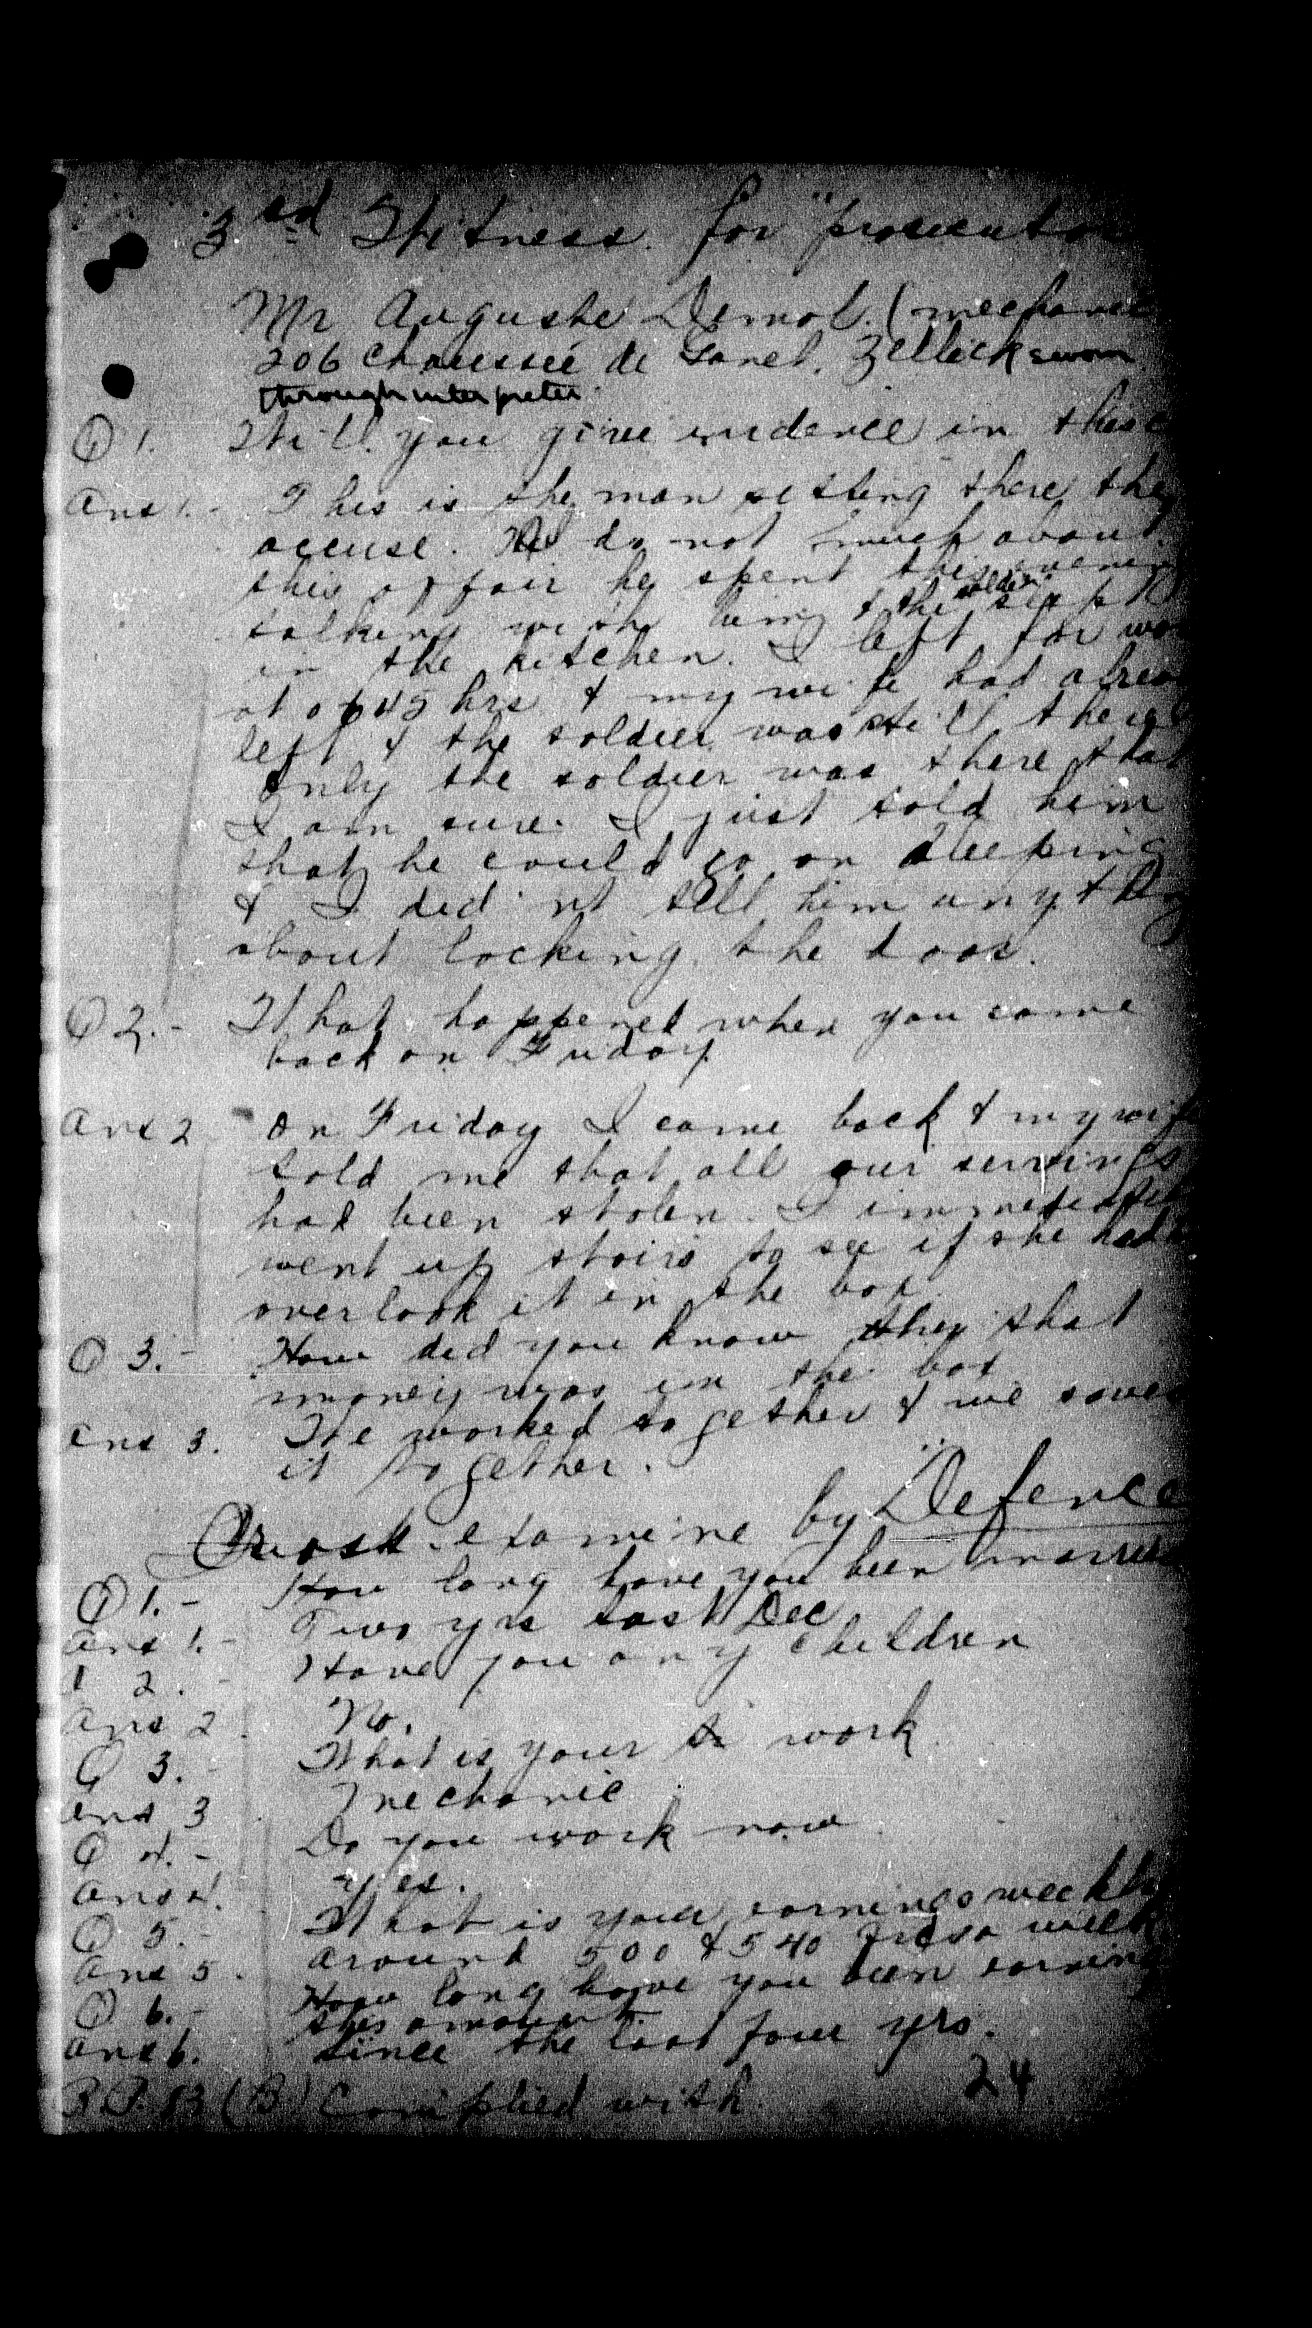 3rd Witness. for "prosecution
Mr Auguste Demol. (mechanic
206 Chaussée de Gand. Zellick sworn
through interpreter
Q 1. Will you give evidence in this
Ans 1. - This is the man sitting there the
accuse. do not much about
this affair he spent the evening
talking with him & the soldier slept
in the kitchen. I left for work
at 0645 hrs & my wife had alrea
left & the soldier was still there
Only the soldier was there that
I am sure. I just told him
that he could go on sleeping
& I did nt tell him any thing
about locking the door.
Q 2. - What happened when you came
back on Friday
Ans 2 On Friday I came back & my wife
told me that all our savings
had been stolen. I immediately
went up stairs to see if she had
overlook it in the box.
Q 3. - How did you know then that
money was in the box
Ans 3. We worked together & we saved
it together.
Cross examine by Defence
Q 1. - How long have you been married
Ans 1. - Two yrs last Dec
2. - Have you any children
Ans 2. No.
Q 3. - What is your work
Ans 3. Mechanic
Q 4. - Do you work now
Ans 4. Yes.
Q 5. - What is your earnings weekly
Ans 5. around 500 & 540 week
Q 6. - How long have you been earning
this amount.
Ans 6. Since the last four yrs.
24
83 (B) Complied with.